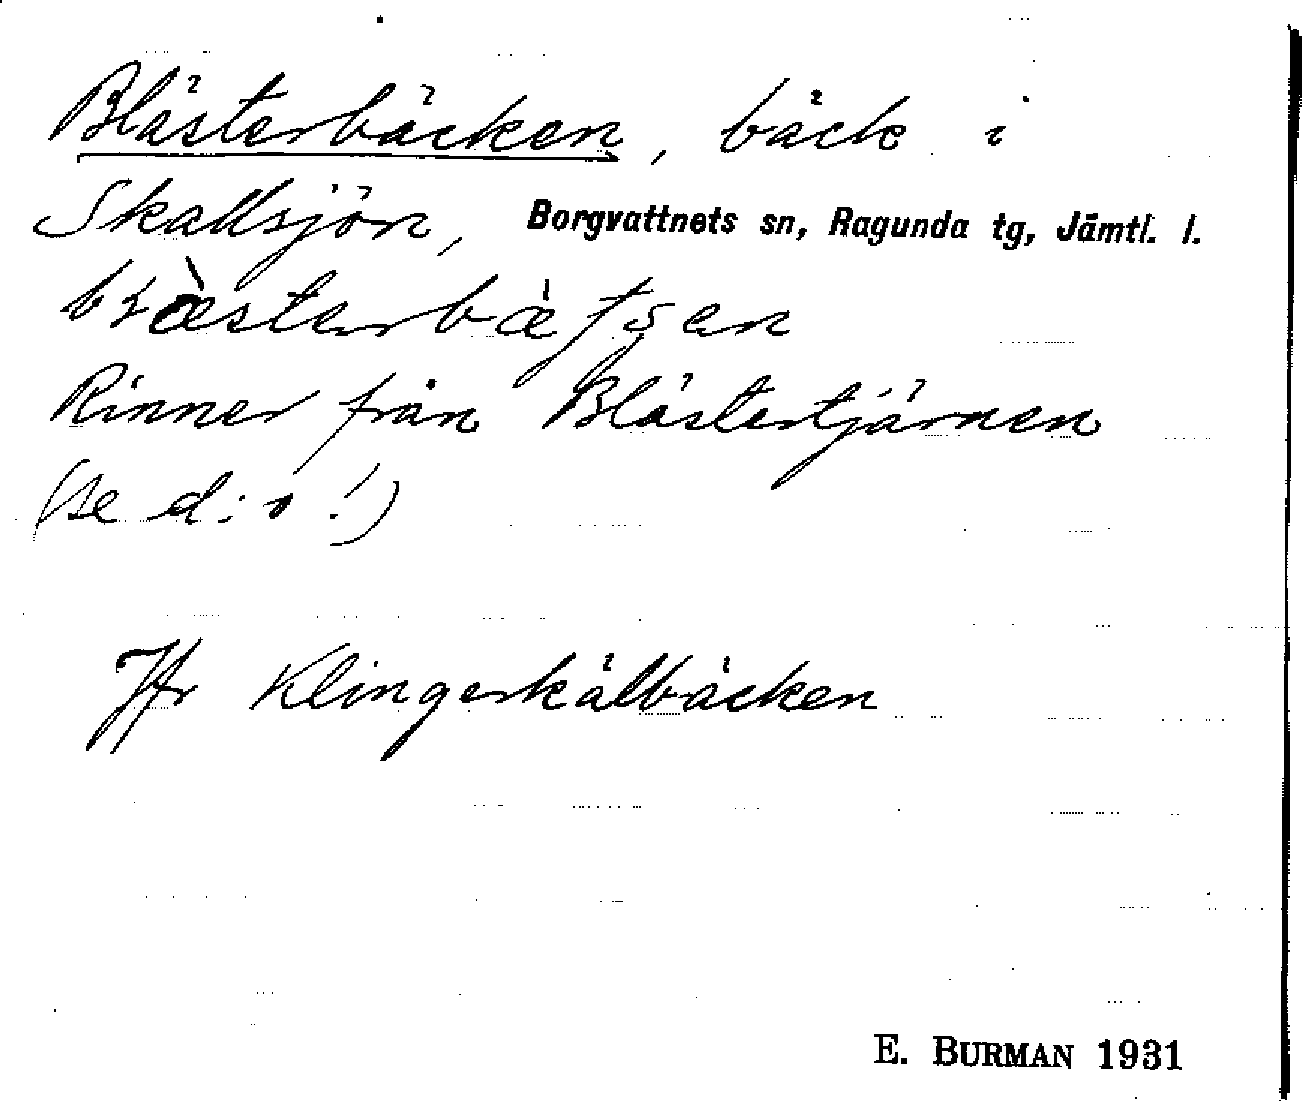 Blästerbäcken, bäck i
Skallsjön, Borgvattnets sn, Ragunda tg, Jämtl. l.
Rinner från Blästertjärnen
(se d:o!)
Jfr Klingerkälbäcken
E. BURMAN 1931